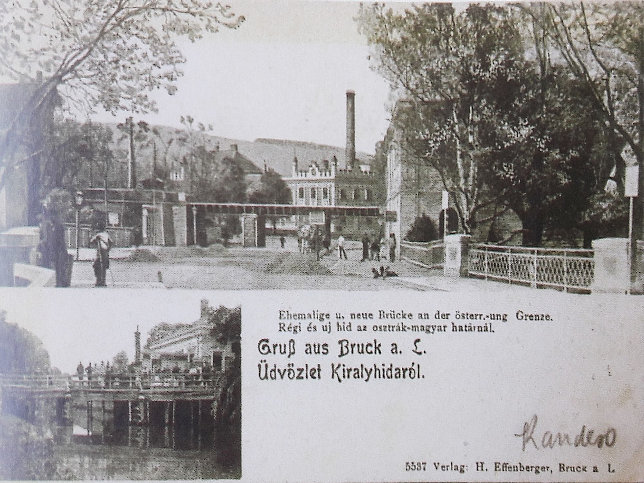 Ehemalige u. neue Brücke an der österr.-ung Grenze.
Régi és uj hid az osztrák-magyar határnál.
Gruß aus Bruck a. L.
Üdvözlet Kiralyhidaról.
5537 Verlag: H. Effenberger, Bruck a L.